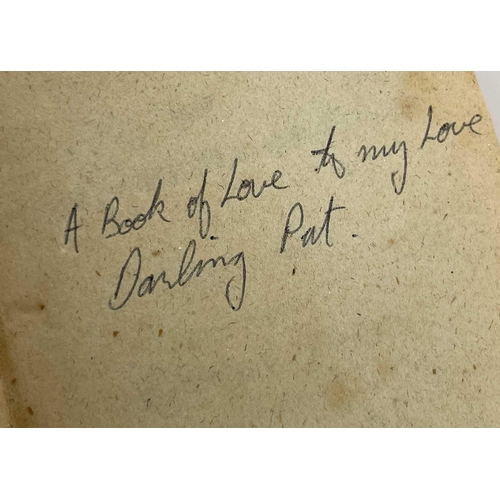 A Book of Love to my Love
Darling Pat.